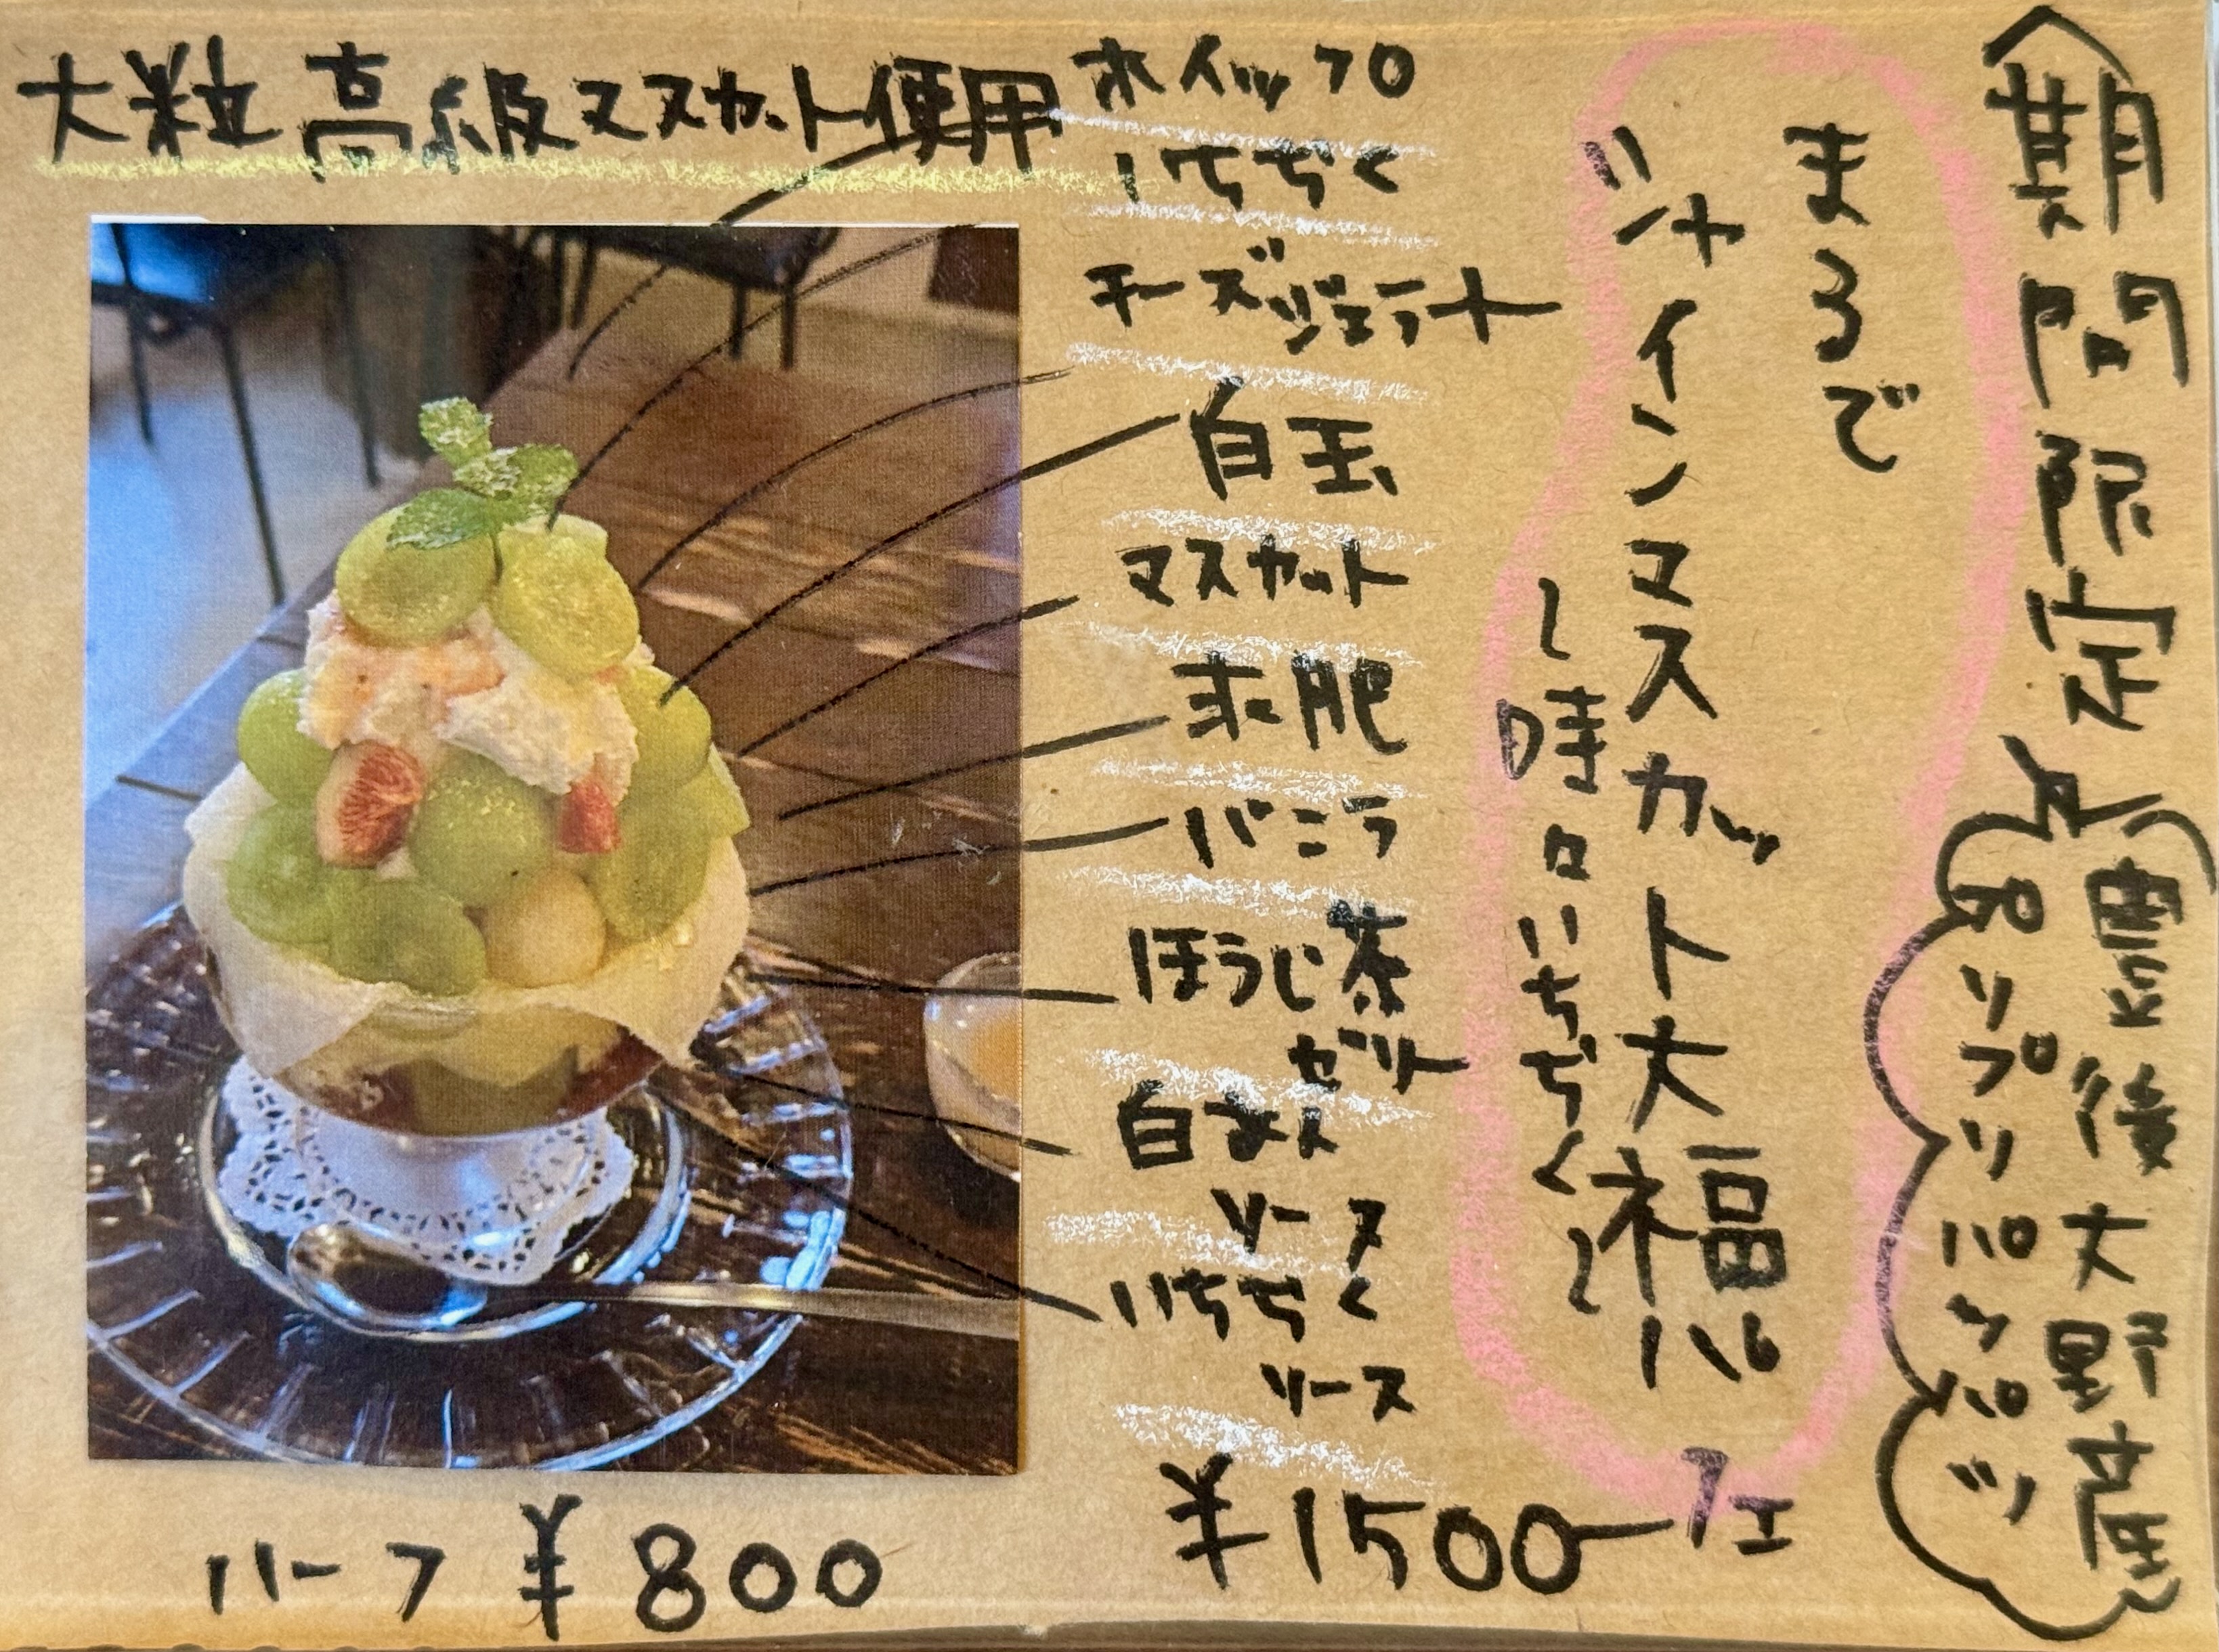 期間限定
豊後大野産
プリプリパツパツ
まるで
シャインマスカット大福パルフェ
〜時々いちぢく〜
大粒高級マスカット使用
ホイップ
いちぢく
チーズジェラート
白玉
マスカット
求肥
バニラ
ほうじ茶
ゼリー
白あん
ソース
いちぢく
ソース
¥1500
ハーフ ¥800